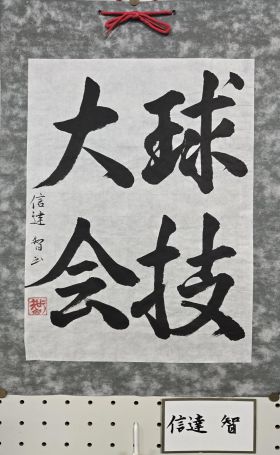 球技
大会
信達 智
信達 智